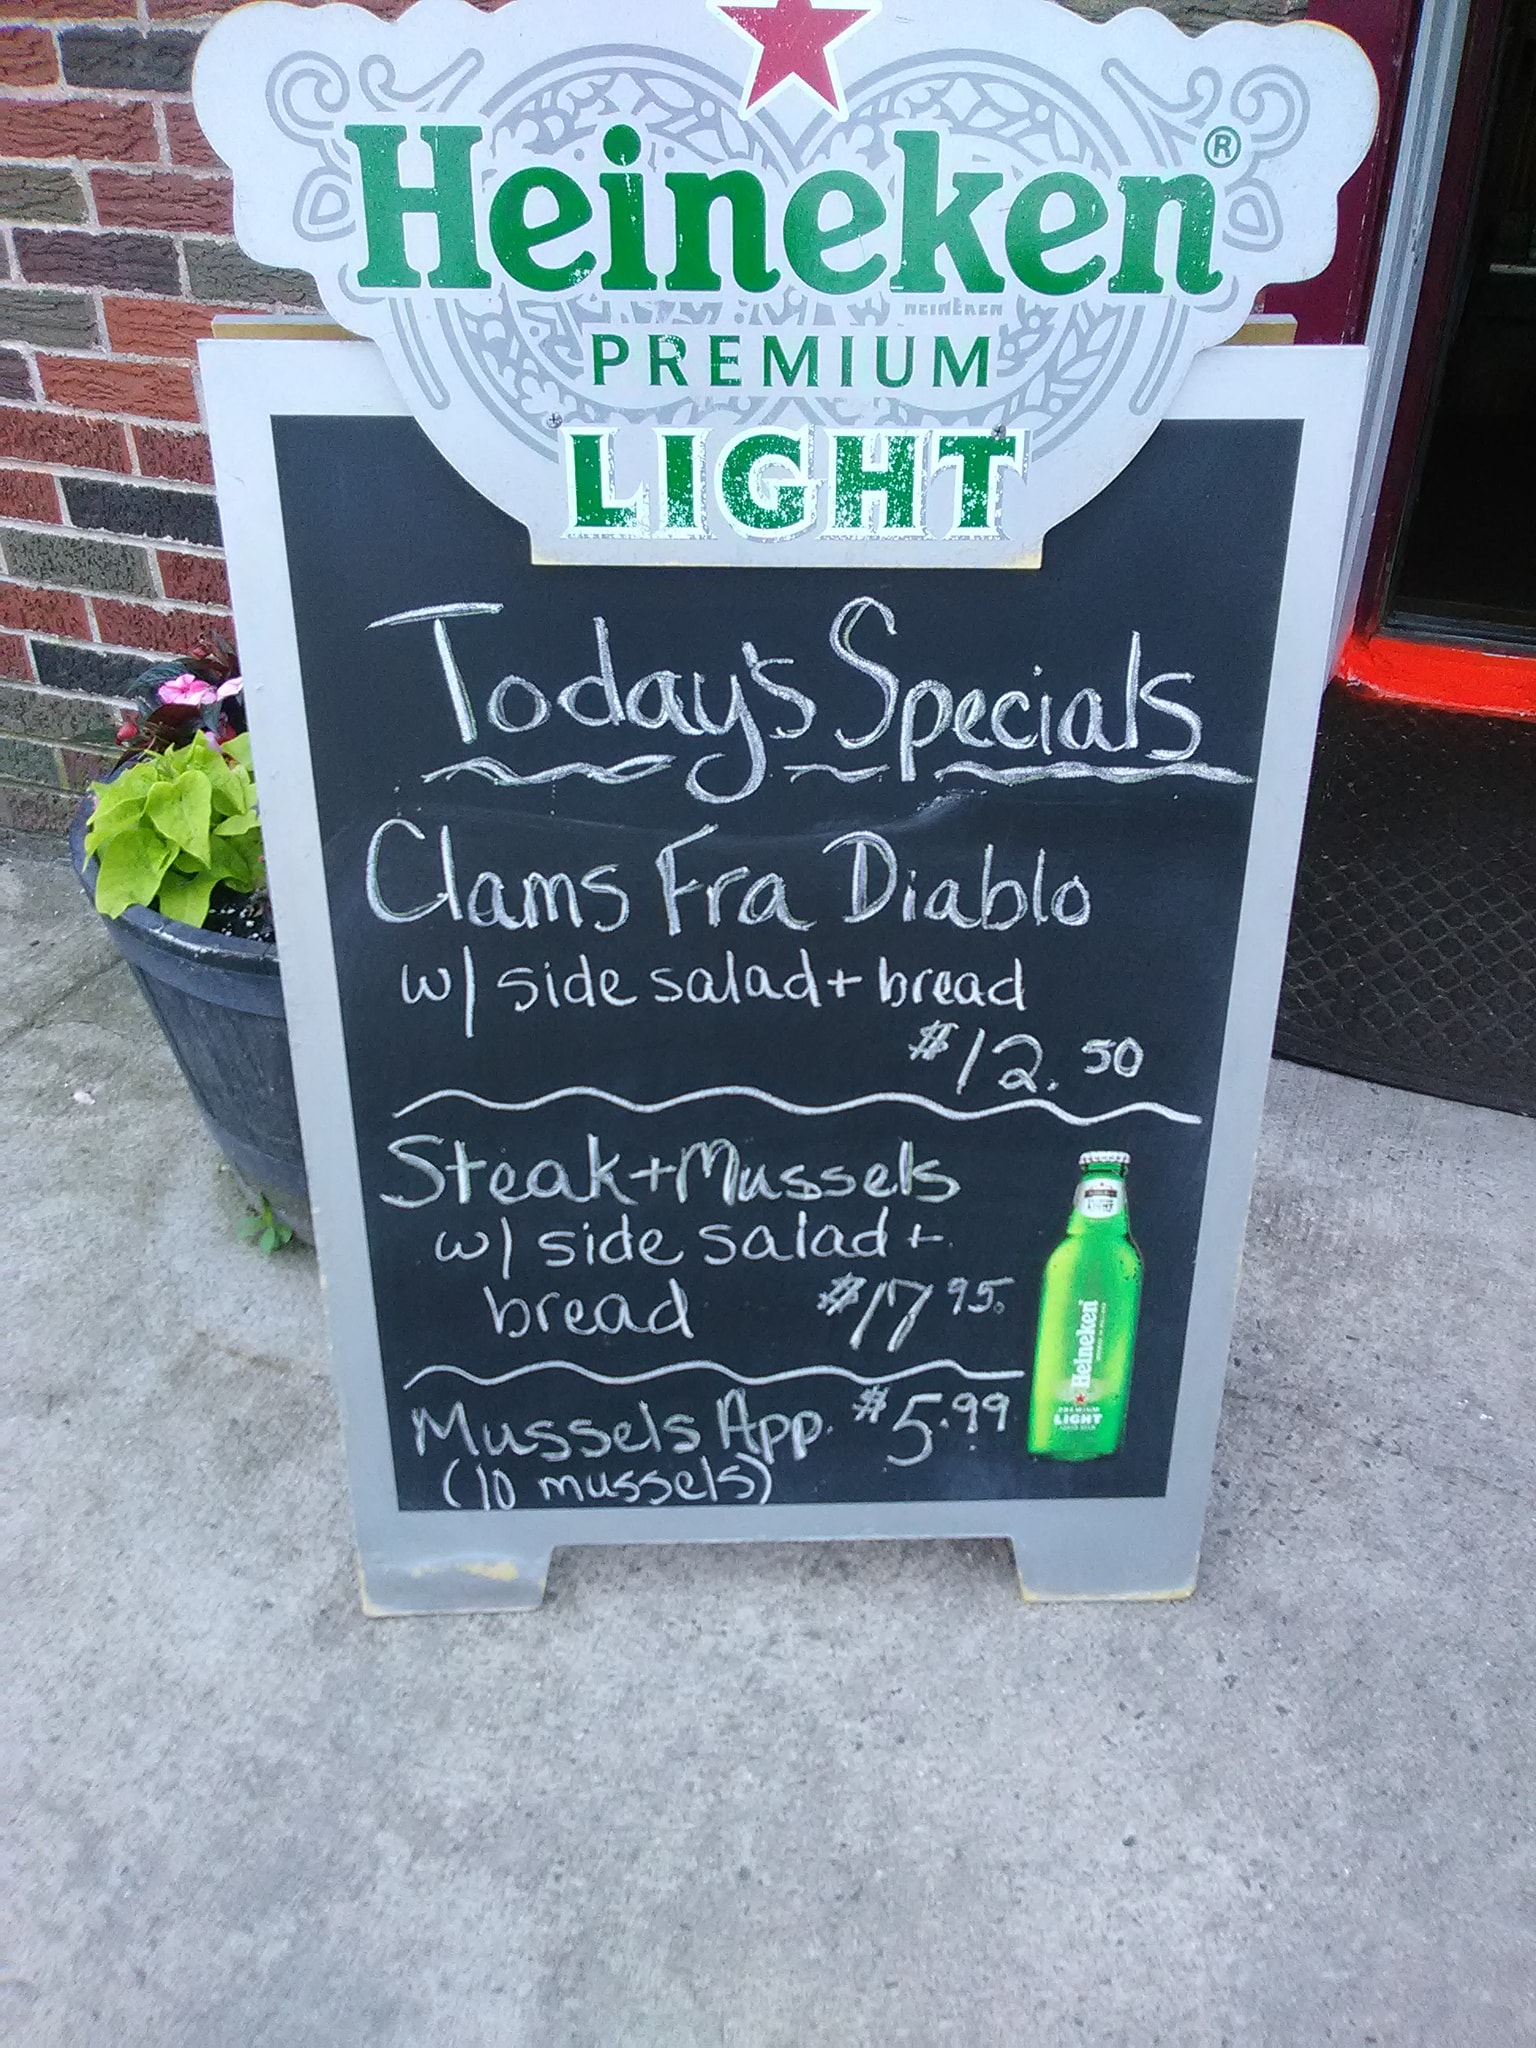 Heineken®
HEINEKEN
PREMIUM
LIGHT
Today's Specials
Clams Fra Diablo
w/ side salad + bread
$12.50
Steak + Mussels
w/ side salad +
bread $17 95.
Mussels App. $5.99
(10 mussels)
Heineken
PREMIUM
LIGHT